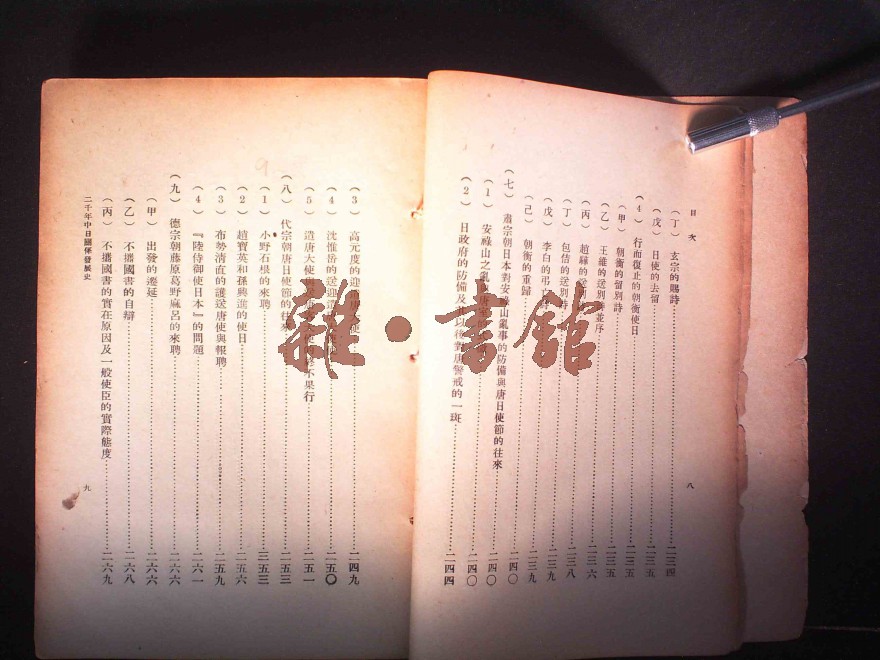 目次
(丁) 玄宗的賜詩……二三四
(戊) 日使的去留……二三五
(4) 行而復止的朝衡使日……二三五
(甲) 朝衡的留別詩……二三五
(乙) 王維的送別詩並序……二三五
(丙) 趙驊的送別詩……二三六
(丁) 包佶的送別詩……二三八
(戊) 李白的弔……二三九
(己) 朝衡的重歸……二三九
(七) 肅宗朝日本對安祿山亂事的防備與唐日使節的往來……二四〇
(1) 安祿山之亂……二四〇
(2) 日政府的防備及……以後對唐警戒的一斑……二四四
八
(3) 高元度的迎……二四九
(4) 沈惟岳的送……二五〇
(5) 遣唐大使……不果行……二五一
(八) 代宗朝唐日使節的往來……二五三
(1) 小野石根的來聘……二五三
(2) 趙寶英和孫興進的使日……二五六
(3) 布勢清直的護送唐使與報聘……二五九
(4) 『陸侍御使日本』的問題……二六一
(九) 德宗朝藤原葛野麻呂的來聘……二六六
(甲) 出發的遷延……二六六
(乙) 不攜國書的自辯……二六八
(丙) 不攜國書的實在原因及一般使臣的實際態度……二六九
二千年中日關係發展史
九
雜·書館